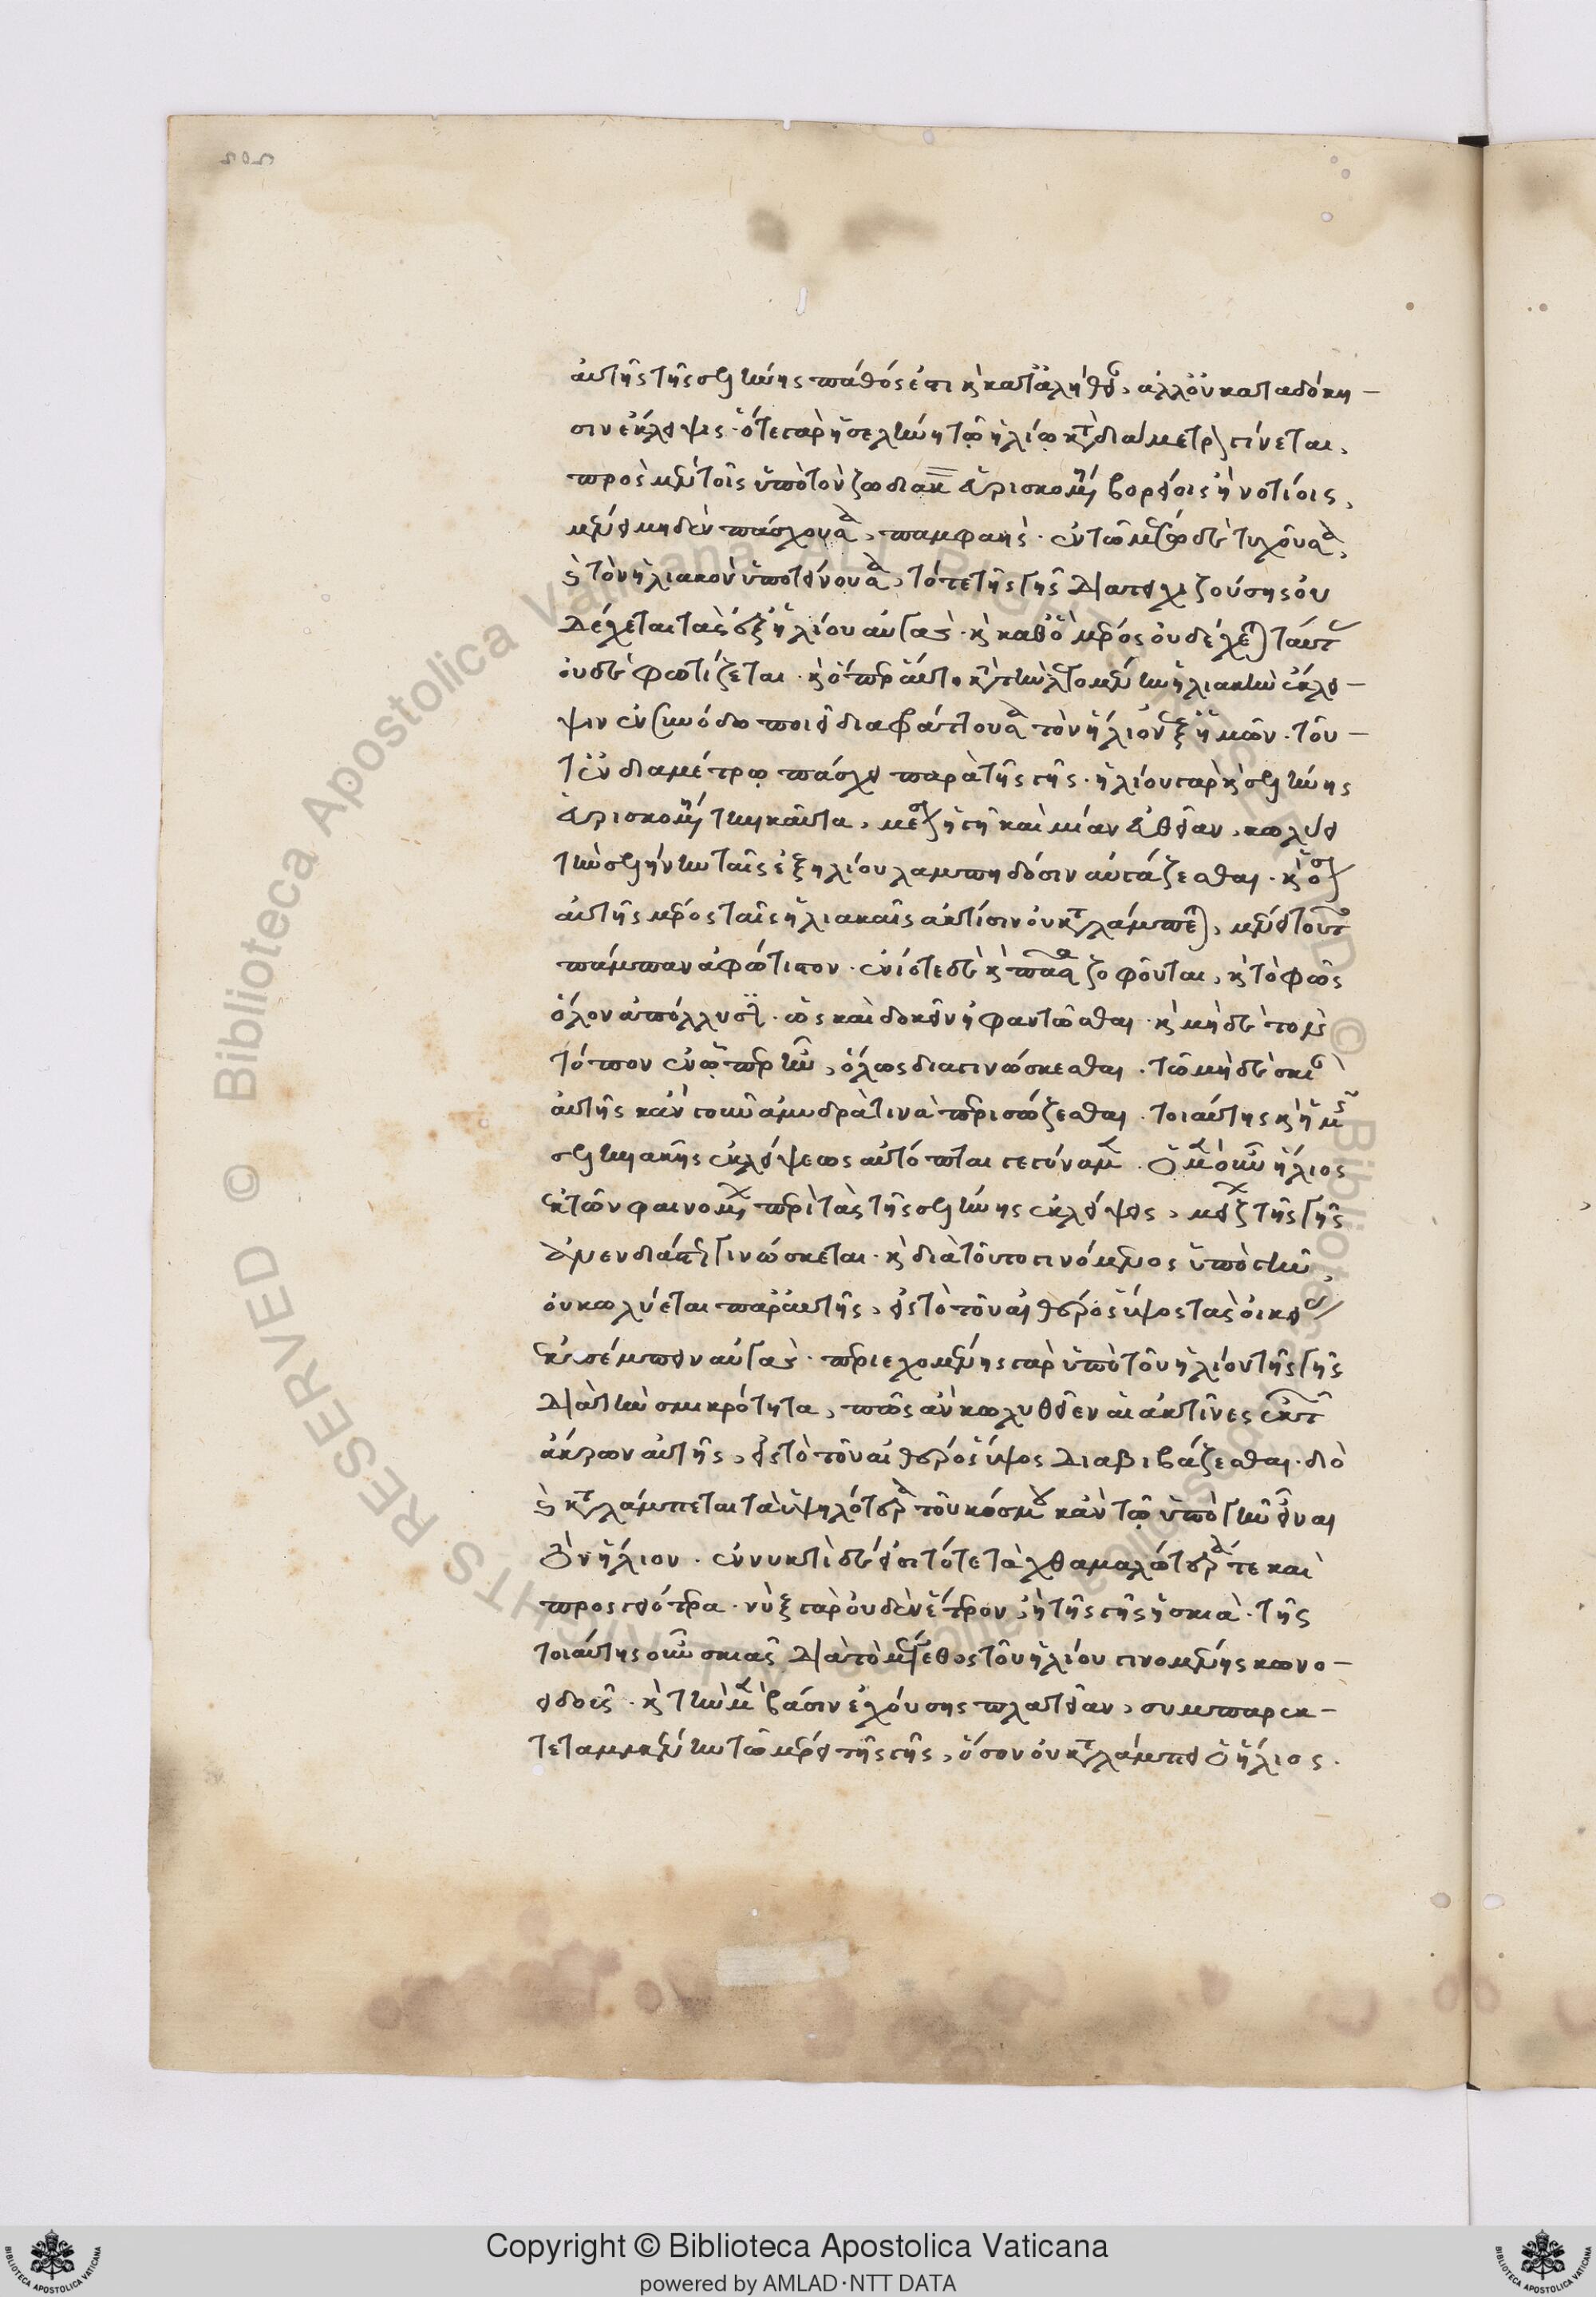 αὐτῆς τῆς σελήνης πάθός ἐστι καὶ κατ' ἀλήθειαν, ἀλλ' οὐ κατὰ δόκη-
σιν ἔκλειψις. ὅτε γὰρ ἡ σελήνη τῷ ἡλίῳ κατὰ διάμετρον γίνεται,
πρὸς μὲν τοῖς ὑπὸ τὸν ζωδιακὸν εὑρισκομένη βορείοις ἢ νοτίοις,
μένει μηδὲν πάσχουσα, παμφαής. ἐν τῷ μέσῳ δὲ τυχοῦσα,
καὶ τὸν ἡλιακὸν ὑποτείνουσα, τό τε τῆς γῆς διατειχιζούσης οὐ
δέχεται τὰς ἐξ ἡλίου αὐγάς. καὶ καθ' ὃ μέρος οὐ δέχεται ταύτας
οὐδὲ φωτίζεται. καὶ ὅπερ αὐτὴ κατὰ τὴν λεγομένην ἡλιακὴν ἔκλει-
ψιν ἐν συνόδῳ ποιεῖ διαφράττουσα τὸν ἥλιον ἐξ ἡμῶν. τοῦ-
τ' ἐν διαμέτρῳ πάσχει παρὰ τῆς γῆς. ἡλίου γὰρ καὶ σελήνης
εὑρισκομένη τηνικαῦτα, μέσον ἡ γῆ καὶ μίαν εὐθεῖαν, κωλύει
τὴν σελήνην ταῖς ἐξ ἡλίου λαμπηδόσιν αὐγάζεσθαι. καὶ ὅσον
αὐτῆς μέρος ταῖς ἡλιακαῖς ἀκτίσιν οὐ καταλάμπεται, μένει τοῦτο
πάμπαν ἀφώτιστον. ἐνίοτε δὲ καὶ πᾶσα ζοφοῦται, καὶ τὸ φῶς
ὅλον ἀπόλλυσιν. ὡς καὶ δοκεῖν ἠφαντῶσθαι. καὶ μηδὲ τὸν
τόπον ἐν ᾧπερ ἦν, ὅλως διαγινώσκεσθαι. τῷ μηδὲ σκιὰν
αὐτῆς κἂν γοῦν ἀμυδρὰ τινὰ περισώζεσθαι. τοιαύτης καὶ ἡμεῖς
σεληνιακῆς ἐκλείψεως αὐτόπται γεγόναμεν. ὁ μὲν οὖν ἥλιος
ἐκ τῶν φαινομένων περὶ τὰς τῆς σελήνης ἐκλείψεις, μείζων τῆς γῆς
διαγινώσκεται. καὶ διὰ τοῦτο γινόμενος ὑπὸ γῆν,
οὐ κωλύεται παρ' αὐτῆς, εἰς τὸ τοῦ αἰθέρος ὕψος τὰς οἰκείας
ἐκπέμπειν αὐγάς. περιεχομένης γὰρ ὑπὸ τοῦ ἡλίου τῆς γῆς
διὰ τὴν σμικρότητα, πῶς ἂν κωλυθεῖεν αἱ ἀκτῖνες ἐκ τῶν
ἄκρων αὐτῆς, εἰς τὸ τοῦ αἰθέρος ὕψος διαβιβάζεσθαι. διὸ
καὶ καταλάμπεται τὰ ὑψηλότερα τοῦ κόσμου κἂν τῷ ὑπὸ γῆν εἶναι
τὸν ἥλιον. ἐν νυκτὶ δέ εἰσι τότε τὰ χθαμαλώτερά τε καὶ
προσγειότερα. νὺξ γὰρ οὐδὲν ἕτερον, ἢ τῆς γῆς ἡ σκιά. τῆς
τοιαύτης οὖν σκιᾶς διὰ τὸ μέγεθος τοῦ ἡλίου γινομένης κωνο-
ειδοῦς. καὶ τὴν μὲν βάσιν ἐχούσης πλατεῖαν, συμπαρεκ-
τεταμμένην τῷ μέρει τῆς γῆς, ὅσον οὐ καταλάμπει ὁ ἥλιος.
Copyright © Biblioteca Apostolica Vaticana
powered by AMLAD·NTT DATA